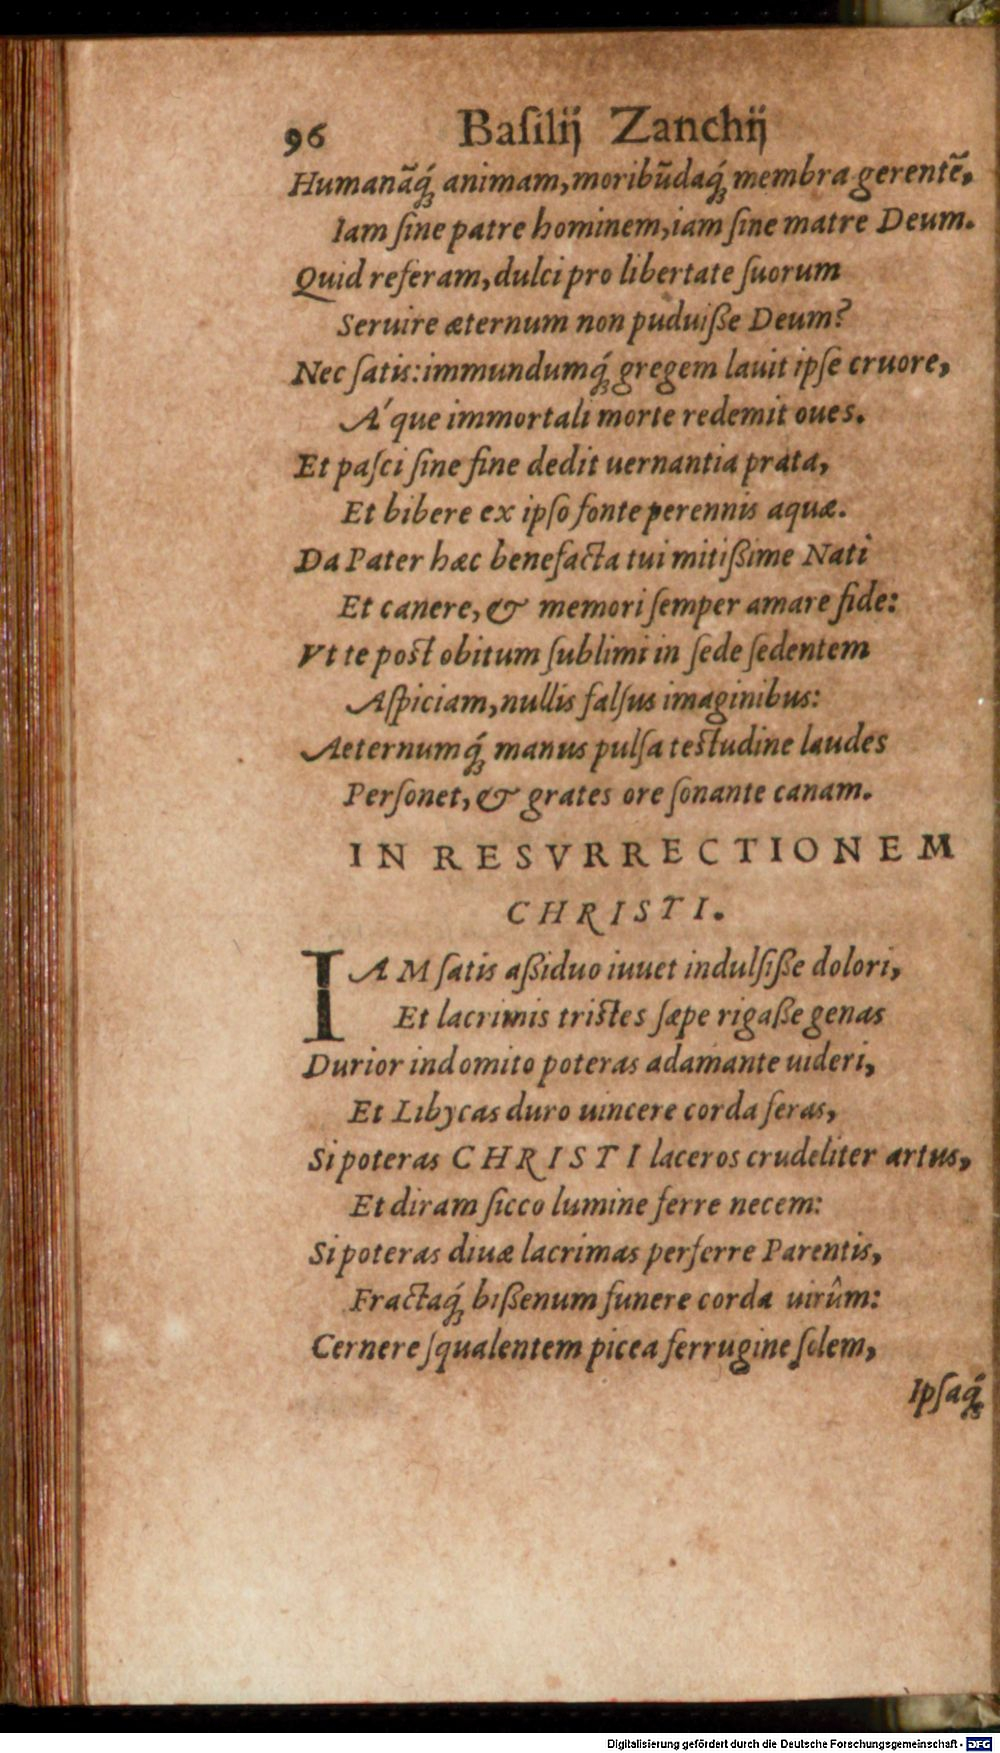 96 Baſilij Zanchij
Humanãq́ꝫ animam, moribũdaq́ꝫ membra gerentẽ,
Iam ſine patre hominem, iam ſine matre Deum.
Quid referam, dulci pro libertate ſuorum
Seruire æternum non puduiſſe Deum?
Nec ſatis: immundumq́ꝫ gregem lauit ipſe cruore,
A´que immortali morte redemit oues.
Et paſci ſine fine dedit uernantia prata,
Et bibere ex ipſo fonte perennis aquæ.
Da Pater hæc benefacta tui mitißime Nati
Et canere, & memori ſemper amare fide:
Vt te poſt obitum ſublimi in ſede ſedentem
Aſpiciam, nullis falſus imaginibus:
Aeternumq́ꝫ manus pulſa teſtudine laudes
Perſonet, & grates ore ſonante canam.
IN RESVRRECTIONEM
CHRISTI.
IAM ſatis aßiduo iuuet indulſiße dolori,
Et lacrimis triſtes ſæpe rigaße genas
Durior indomito poteras adamante uideri,
Et Libycas duro uincere corda feras,
Si poteras CHRISTI laceros crudeliter artus,
Et diram ſicco lumine ferre necem:
Si poteras diuæ lacrimas perferre Parentis,
Fractaq́ꝫ bißenum funere corda uirûm:
Cernere ſqualentem picea ferrugine ſolem,
Ipſaq́ꝫ
Digitalisierung gefördert durch die Deutsche Forschungsgemeinschaft - DFG